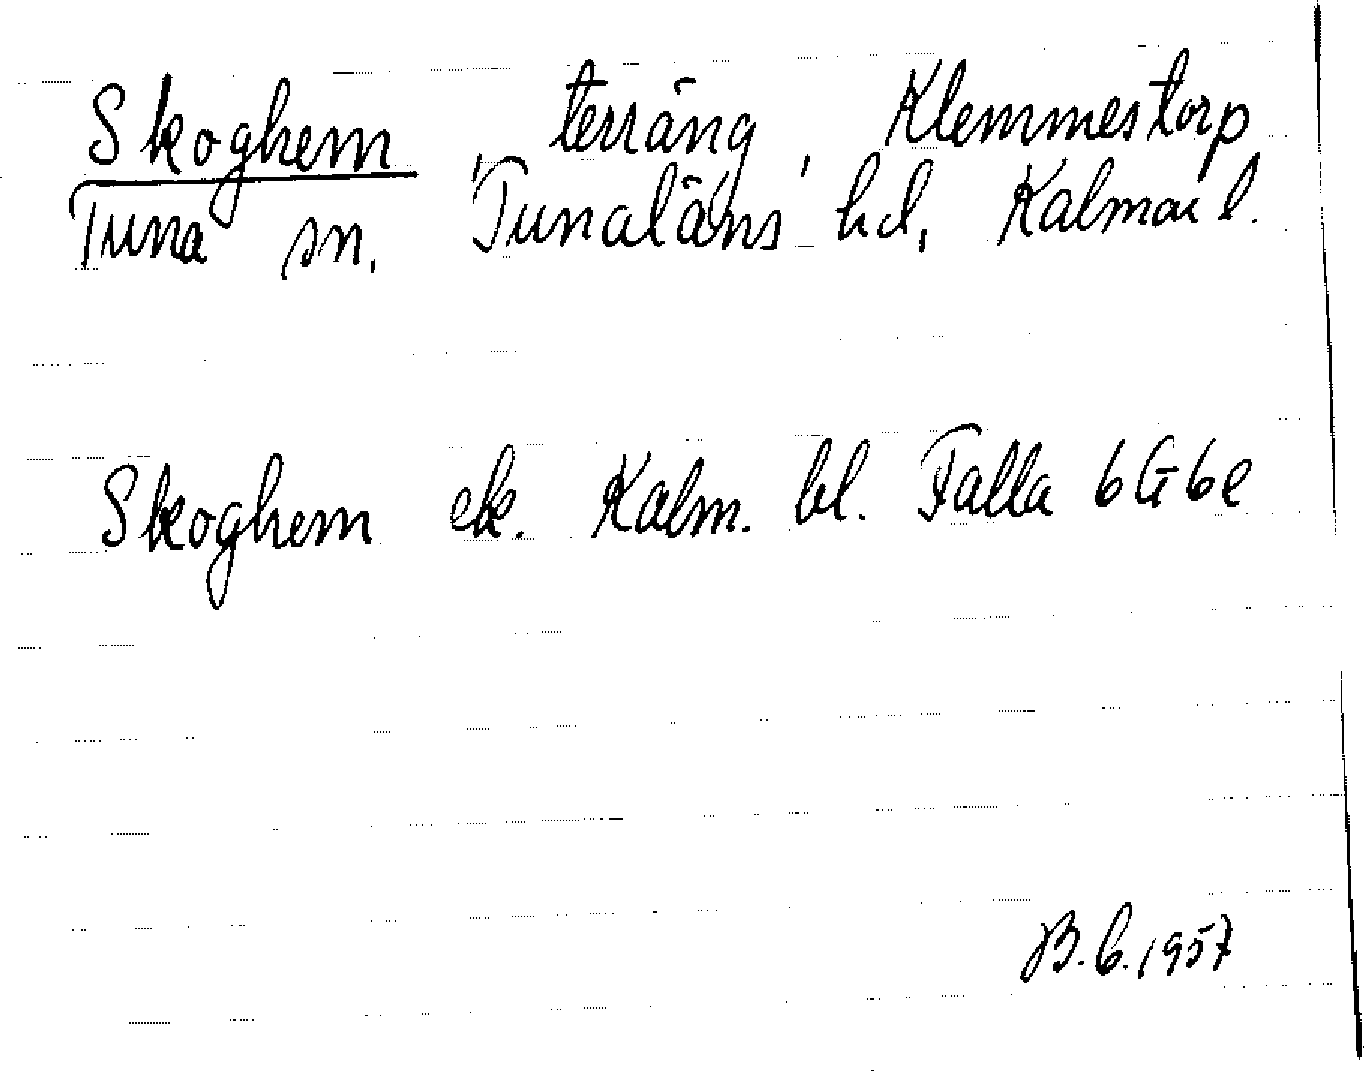 Skoghem, terräng, Klemmestorp
Tuna sn. Tunaläns hd, Kalmar l.
Skoghem ek. Kalm. bl. Falla 6G6e
B.C. 1957